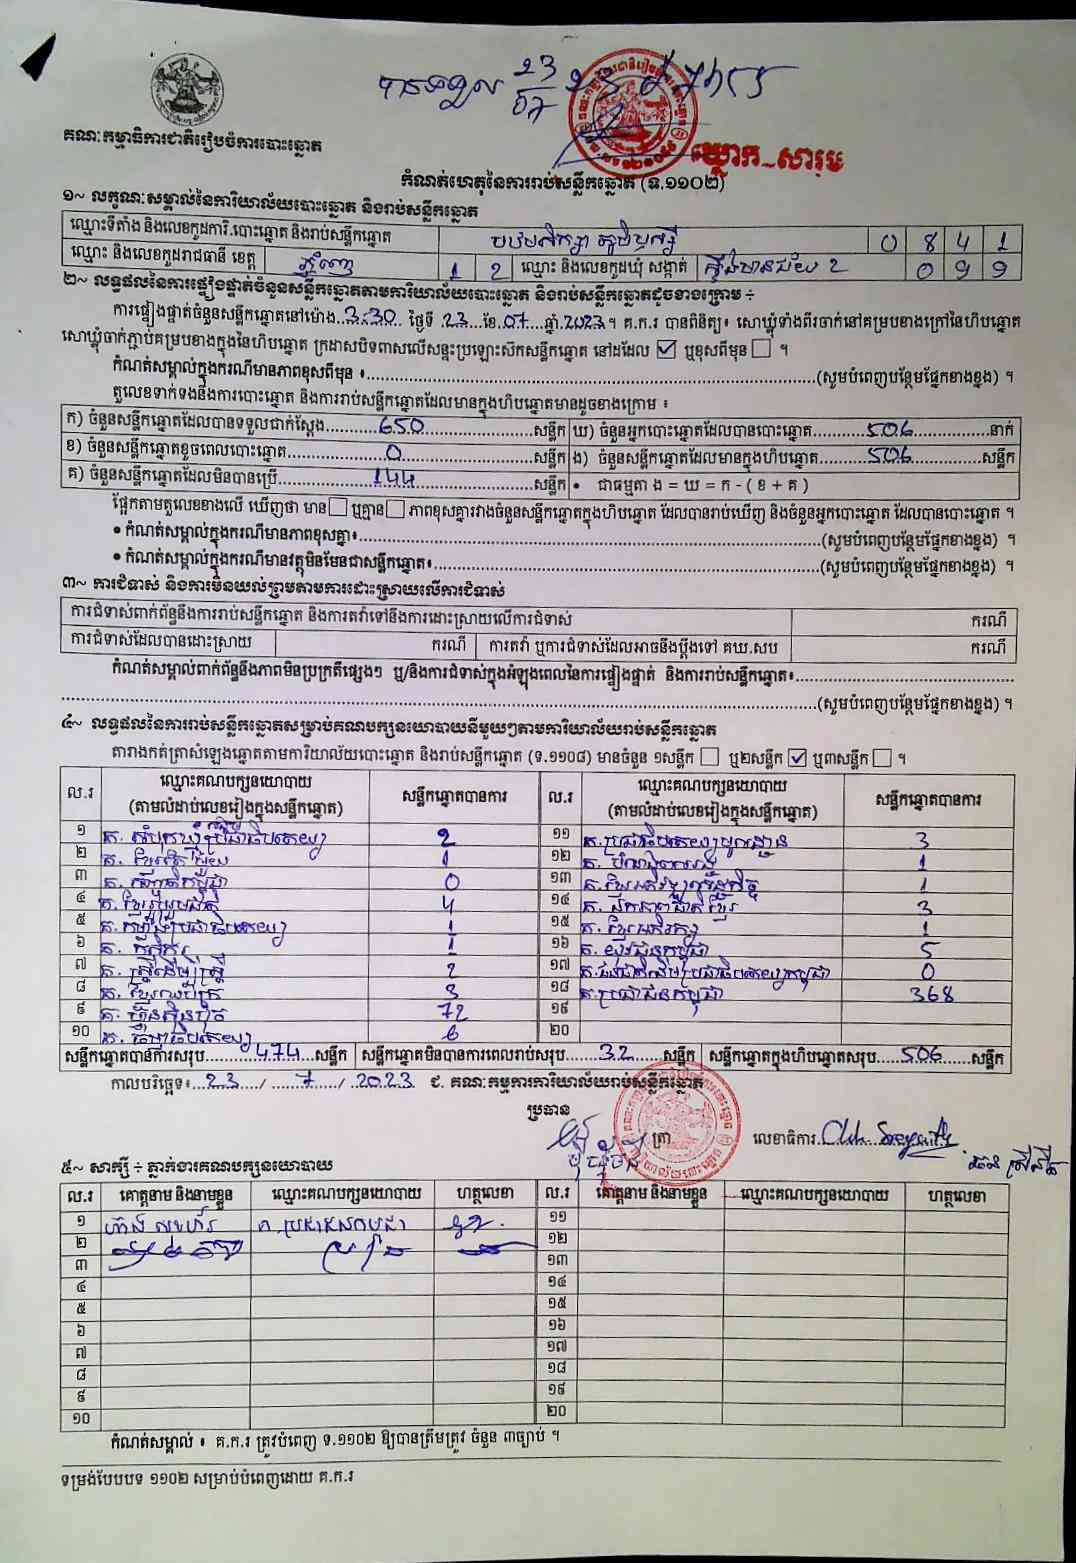 បានទទួល 23
07
គណៈកម្មាធិការជាតិរៀបចំការបោះឆ្នោត
ឃ្លោក សារុម
កំណត់ហេតុនៃការរាប់សន្លឹកឆ្នោត (ទ.១១០២)
១~ លក្ខណៈសម្គាល់នៃការិយាល័យបោះឆ្នោត និងរាប់សន្លឹកឆ្នោត
ឈ្មោះទីតាំង និងលេខកូដការិ.បោះឆ្នោត និងរាប់សន្លឹកឆ្នោត 0 8 4 1
ឈ្មោះ និងលេខកូដរាជធានី ខេត្ត ភ្នំពេញ 1 2 ឈ្មោះ និងលេខកូដឃុំ សង្កាត់ ស្ទឹងមានជ័យ 2 0 9 9
២~ លទ្ធផលនៃការផ្ទៀងផ្ទាត់ចំនួនសន្លឹកឆ្នោតតាមការិយាល័យបោះឆ្នោត និងរាប់សន្លឹកឆ្នោតដូចខាងក្រោម ÷
ការផ្ទៀងផ្ទាត់ចំនួនសន្លឹកឆ្នោតនៅម៉ោង 3:30 ថ្ងៃទី 23 ខែ 07 ឆ្នាំ 2023 ។ គ.ក.រ បានពិនិត្យ៖ សោឃ្លុំទាំងពីរចាក់នៅគម្របខាងក្រៅនៃហិបឆ្នោត
សោឃ្លុំចាក់ភ្ជាប់គម្របខាងក្នុងនៃហិបឆ្នោត ក្រដាសបិទពាសលើសន្ទះប្រឡោះស៊កសន្លឹកឆ្នោត នៅដដែល ☑ ឬខុសពីមុន ☐ ។
កំណត់សម្គាល់ក្នុងករណីមានភាពខុសពីមុន ៖ (សូមបំពេញបន្ថែមផ្នែកខាងខ្នង) ។
តួលេខទាក់ទងនឹងការបោះឆ្នោត និងការរាប់សន្លឹកឆ្នោតដែលមានក្នុងហិបឆ្នោតមានដូចខាងក្រោម ៖
ក) ចំនួនសន្លឹកឆ្នោតដែលបានទទួលជាក់ស្តែង 650 សន្លឹក ឃ) ចំនួនអ្នកបោះឆ្នោតដែលបានបោះឆ្នោត 506 នាក់
ខ) ចំនួនសន្លឹកឆ្នោតខូចពេលបោះឆ្នោត 0 សន្លឹក ង) ចំនួនសន្លឹកឆ្នោតដែលមានក្នុងហិបឆ្នោត 506 សន្លឹក
គ) ចំនួនសន្លឹកឆ្នោតដែលមិនបានប្រើ 144 សន្លឹក • ជាធម្មតា ង = ឃ = ក - ( ខ + គ )
ផ្អែកតាមតួលេខខាងលើ ឃើញថា មាន ☐ ឬគ្មាន ☐ ភាពខុសគ្នារវាងចំនួនសន្លឹកឆ្នោតក្នុងហិបឆ្នោត ដែលបានរាប់ឃើញ និងចំនួនអ្នកបោះឆ្នោត ដែលបានបោះឆ្នោត ។
• កំណត់សម្គាល់ក្នុងករណីមានភាពខុសគ្នា៖ (សូមបំពេញបន្ថែមផ្នែកខាងខ្នង) ។
• កំណត់សម្គាល់ក្នុងករណីមានវត្ថុមិនមែនជាសន្លឹកឆ្នោត៖ (សូមបំពេញបន្ថែមផ្នែកខាងខ្នង) ។
៣~ ការជំទាស់ និងការមិនយល់ព្រមតាមការដោះស្រាយលើការជំទាស់
ការជំទាស់ពាក់ព័ន្ធនឹងការរាប់សន្លឹកឆ្នោត និងការតវ៉ាទៅនឹងការដោះស្រាយលើការជំទាស់ ករណី
ការជំទាស់ដែលបានដោះស្រាយ ករណី ការតវ៉ា ឬការជំទាស់ដែលអាចនឹងប្តឹងទៅ គឃ.សប ករណី
កំណត់សម្គាល់ពាក់ព័ន្ធនឹងភាពមិនប្រក្រតីផ្សេងៗ ឬ/និងការជំទាស់ក្នុងអំឡុងពេលនៃការផ្ទៀងផ្ទាត់ និងការរាប់សន្លឹកឆ្នោត៖
(សូមបំពេញបន្ថែមផ្នែកខាងខ្នង) ។
៤~ លទ្ធផលនៃការរាប់សន្លឹកឆ្នោតសម្រាប់គណបក្សនយោបាយនីមួយៗតាមការិយាល័យរាប់សន្លឹកឆ្នោត
តារាងកត់ត្រាសំឡេងឆ្នោតតាមការិយាល័យបោះឆ្នោត និងរាប់សន្លឹកឆ្នោត (ទ.១១០៨) មានចំនួន ១សន្លឹក ☐ ឬ២សន្លឹក ☑ ឬ៣សន្លឹក ☐ ។
ល.រ ឈ្មោះគណបក្សនយោបាយ (តាមលំដាប់លេខរៀងក្នុងសន្លឹកឆ្នោត) សន្លឹកឆ្នោតបានការ ល.រ ឈ្មោះគណបក្សនយោបាយ (តាមលំដាប់លេខរៀងក្នុងសន្លឹកឆ្នោត) សន្លឹកឆ្នោតបានការ
១ គ. សំបុកឃ្មុំប្រជាធិបតេយ្យ 2 ១១ គ.ប្រជាធិបតេយ្យមូលដ្ឋាន 3
២ គ. ខ្មែរតែមួយ 1 ១២ 1
៣ គ. កម្ពុជា 0 ១៣ គ.ខ្មែរអភិវឌ្ឍន៍សេដ្ឋកិច្ច 1
៤ គ. ខ្មែររួបរួមជាតិ 4 ១៤ គ. ឯកភាពជាតិខ្មែរ 3
៥ គ. កម្លាំងប្រជាធិបតេយ្យ 1 ១៥ គ. ខ្មែរអភិរក្ស 1
៦ គ. កសិករ 1 ១៦ គ. យុវជនកម្ពុជា 5
៧ គ. ស្ត្រីដើម្បីស្ត្រី 2 ១៧ គ.ជនជាតិដើមប្រជាធិបតេយ្យកម្ពុជា 0
៨ គ. ខ្មែរឈប់ក្រ 3 ១៨ គ.ប្រជាជនកម្ពុជា 368
៩ គ. ហ៊្វុនស៊ិនប៉ិច 72 ១៩
១០ គ. ធម្មាធិបតេយ្យ 6 ២០
សន្លឹកឆ្នោតបានការសរុប 474 សន្លឹក សន្លឹកឆ្នោតមិនបានការពេលរាប់សរុប 32 សន្លឹក សន្លឹកឆ្នោតក្នុងហិបឆ្នោតសរុប 506 សន្លឹក
កាលបរិច្ឆេទ៖ 23 / 7 / 2023 ជ. គណៈកម្មការការិយាល័យរាប់សន្លឹកឆ្នោត
ប្រធាន
ត្រា លេខាធិការ
៥~ សាក្សី ÷ ភ្នាក់ងារគណបក្សនយោបាយ
ល.រ គោត្តនាម និងនាមខ្លួន ឈ្មោះគណបក្សនយោបាយ ហត្ថលេខា ល.រ គោត្តនាម និងនាមខ្លួន ឈ្មោះគណបក្សនយោបាយ ហត្ថលេខា
១ គ. ប្រជាជនកម្ពុជា ១១
២ ១២
៣ ១៣
៤ ១៤
៥ ១៥
៦ ១៦
៧ ១៧
៨ ១៨
៩ ១៩
១០ ២០
កំណត់សម្គាល់ ៖ គ.ក.រ ត្រូវបំពេញ ទ.១១០២ ឱ្យបានត្រឹមត្រូវ ចំនួន ៣ច្បាប់ ។
ទម្រង់បែបបទ ១១០២ សម្រាប់បំពេញដោយ គ.ក.រ